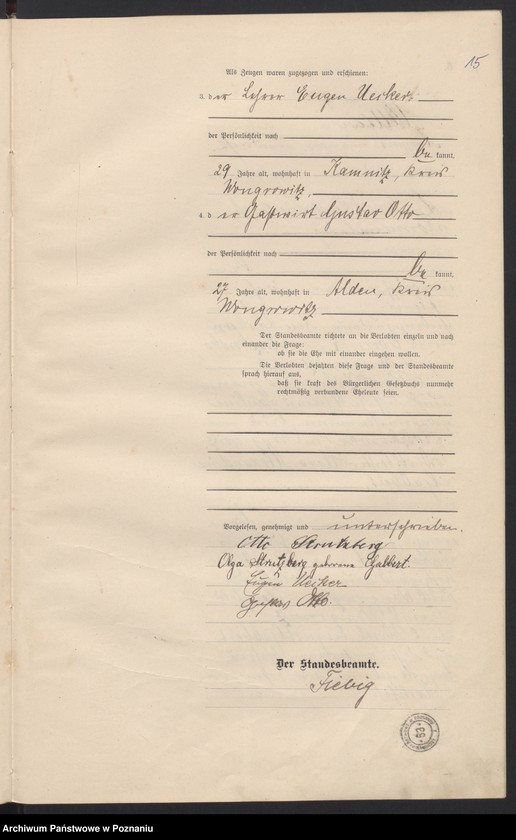 15
Als Zeugen waren zugezogen und erschienen:
3. der Lehrer Eugen Ueckert
der Persönlichkeit nach
be kannt,
29 Jahre alt, wohnhaft in Kamnitz, Kreis
Wongrowitz.
4. der Gastwirt Gustav Otto
der Persönlichkeit nach
be kannt,
27 Jahre alt, wohnhaft in Alden, Kreis
Wongrowitz
Der Standesbeamte richtete an die Verlobten einzeln und nach
einander die Frage:
ob sie die Ehe mit einander eingehen wollen.
Die Verlobten bejahten diese Frage und der Standesbeamte
sprach hierauf aus,
daß sie kraft des Bürgerlichen Gesetzbuchs nunmehr
rechtmäßig verbundene Eheleute seien.
Vorgelesen, genehmigt und unterschrieben.
Otto Strutzberg
Olga Strutzberg geborene Galbert.
Eugen Uecker
Gustav Otto.
Der Standesbeamte.
Fiebig
53
Archiwum Państwowe w Poznaniu